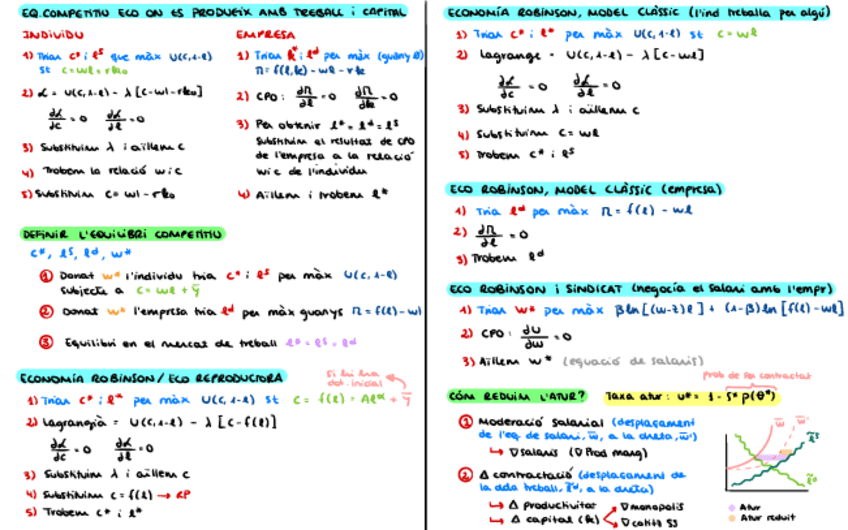 EQ. COMPETITIU ECO ON ES PRODUEIX AMB TREBALL i CAPITAL
INDIVIDU
1) Trian c* i ℓˢ que màx U(c,1-ℓ)
st c = wℓ + rk₀
2) ℒ = U(c,1-ℓ) - λ [c-wl-rk₀]
∂ℒ/∂c = 0 ∂ℒ/∂ℓ = 0
3) Substituim λ i aïllem c
4) Trobem la relació w i c
5) Substituim c = wl - rk₀
EMPRESA
1) Trian k* i ℓᵈ per màx (guany Π)
Π = f(ℓ,k) - wℓ - rk
2) CPO: ∂Π/∂ℓ = 0 ∂Π/∂k = 0
3) Per obtenir ℓ* = ℓᵈ = ℓˢ
substituim el resultat de CPO
de l'empresa a la relació
w i c de l'individu
4) Aïllem i trobem ℓ*
DEFINIR L'EQUILIBRI COMPETITIU
c*, ℓˢ, ℓᵈ, w*
1 Donat w* l'individu tria c* i ℓˢ per màx U(c,1-ℓ)
subjecte a c = wℓ + ȳ
2 Donat w* l'empresa tria ℓᵈ per màx guanys Π = f(ℓ) - wl
3 Equilibri en el mercat de treball ℓ* = ℓˢ = ℓᵈ
ECONOMÍA ROBINSON / ECO REPRODUCTORA
si hi ha
dot. inicial
1) Trian c* i ℓ* per màx U(c,1-ℓ) st c = f(ℓ) = Aℓᵅ + ȳ
2) Lagrangià = U(c,1-ℓ) - λ [c-f(ℓ)]
∂ℒ/∂c = 0 ∂ℒ/∂ℓ = 0
3) Substituim λ i aïllem c
4) Substituim c = f(ℓ) → RP
5) Trobem c* i ℓ*
ECONOMÍA ROBINSON, MODEL CLÀSSIC (l'ind treballa per algú)
1) Trian c* i ℓ* per màx U(c,1-ℓ) st c = wℓ
2) Lagrange = U(c,1-ℓ) - λ [c-wℓ]
∂ℒ/∂c = 0 ∂ℒ/∂ℓ = 0
3) Substituim λ i aïllem c
4) Substituim c = wℓ
5) Trobem c* i ℓˢ
ECO ROBINSON, MODEL CLÀSSIC (empresa)
1) Tria ℓᵈ per màx Π = f(ℓ) - wℓ
2) ∂Π/∂ℓ = 0
3) Trobem ℓᵈ
ECO ROBINSON i SINDICAT (negocía el salari amb l'empr)
1) Trian w* per màx βln[(w-z)ℓ] + (1-β)ln[f(ℓ) - wℓ]
2) CPO: ∂U/∂w = 0
3) Aïllem w* (equació de salaris)
prob de ser contractat
CÓM REDUÏM L'ATUR? Taxa atur: u* = 1 - s* p(θ*)
1 Moderació salarial (desplaçament
de l'eq de salari, w̄, a la dreta, w̄')
↳ ∇ salaris (∇ Prod marg)
2 Δ contractació (desplaçament de
la dda treball, ℓ̃ᵈ, a la dreta)
↳ Δ productivitat
↳ Δ capital (k)
∇ monopolis
∇ cotitz SS
w̄ w̄'
ℓ̃ˢ
ℓ̃ᵈ
Atur
Atur reduït